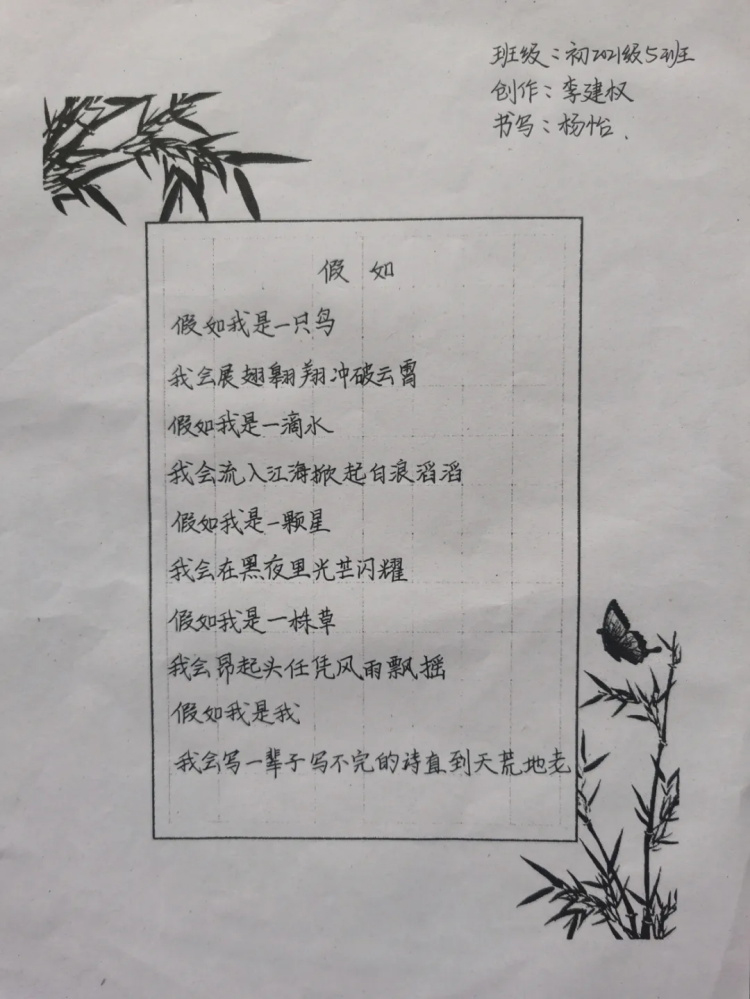 班级：初2021级5班
创作：李建权
书写：杨怡.
假如
假如我是一只鸟
我会展翅翱翔冲破云霄
假如我是一滴水
我会流入江海掀起白浪滔滔
假如我是一颗星
我会在黑夜里光芒闪耀
假如我是一株草
我会昂起头任凭风雨飘摇
假如我是我
我会写一辈子写不完的诗直到天荒地老